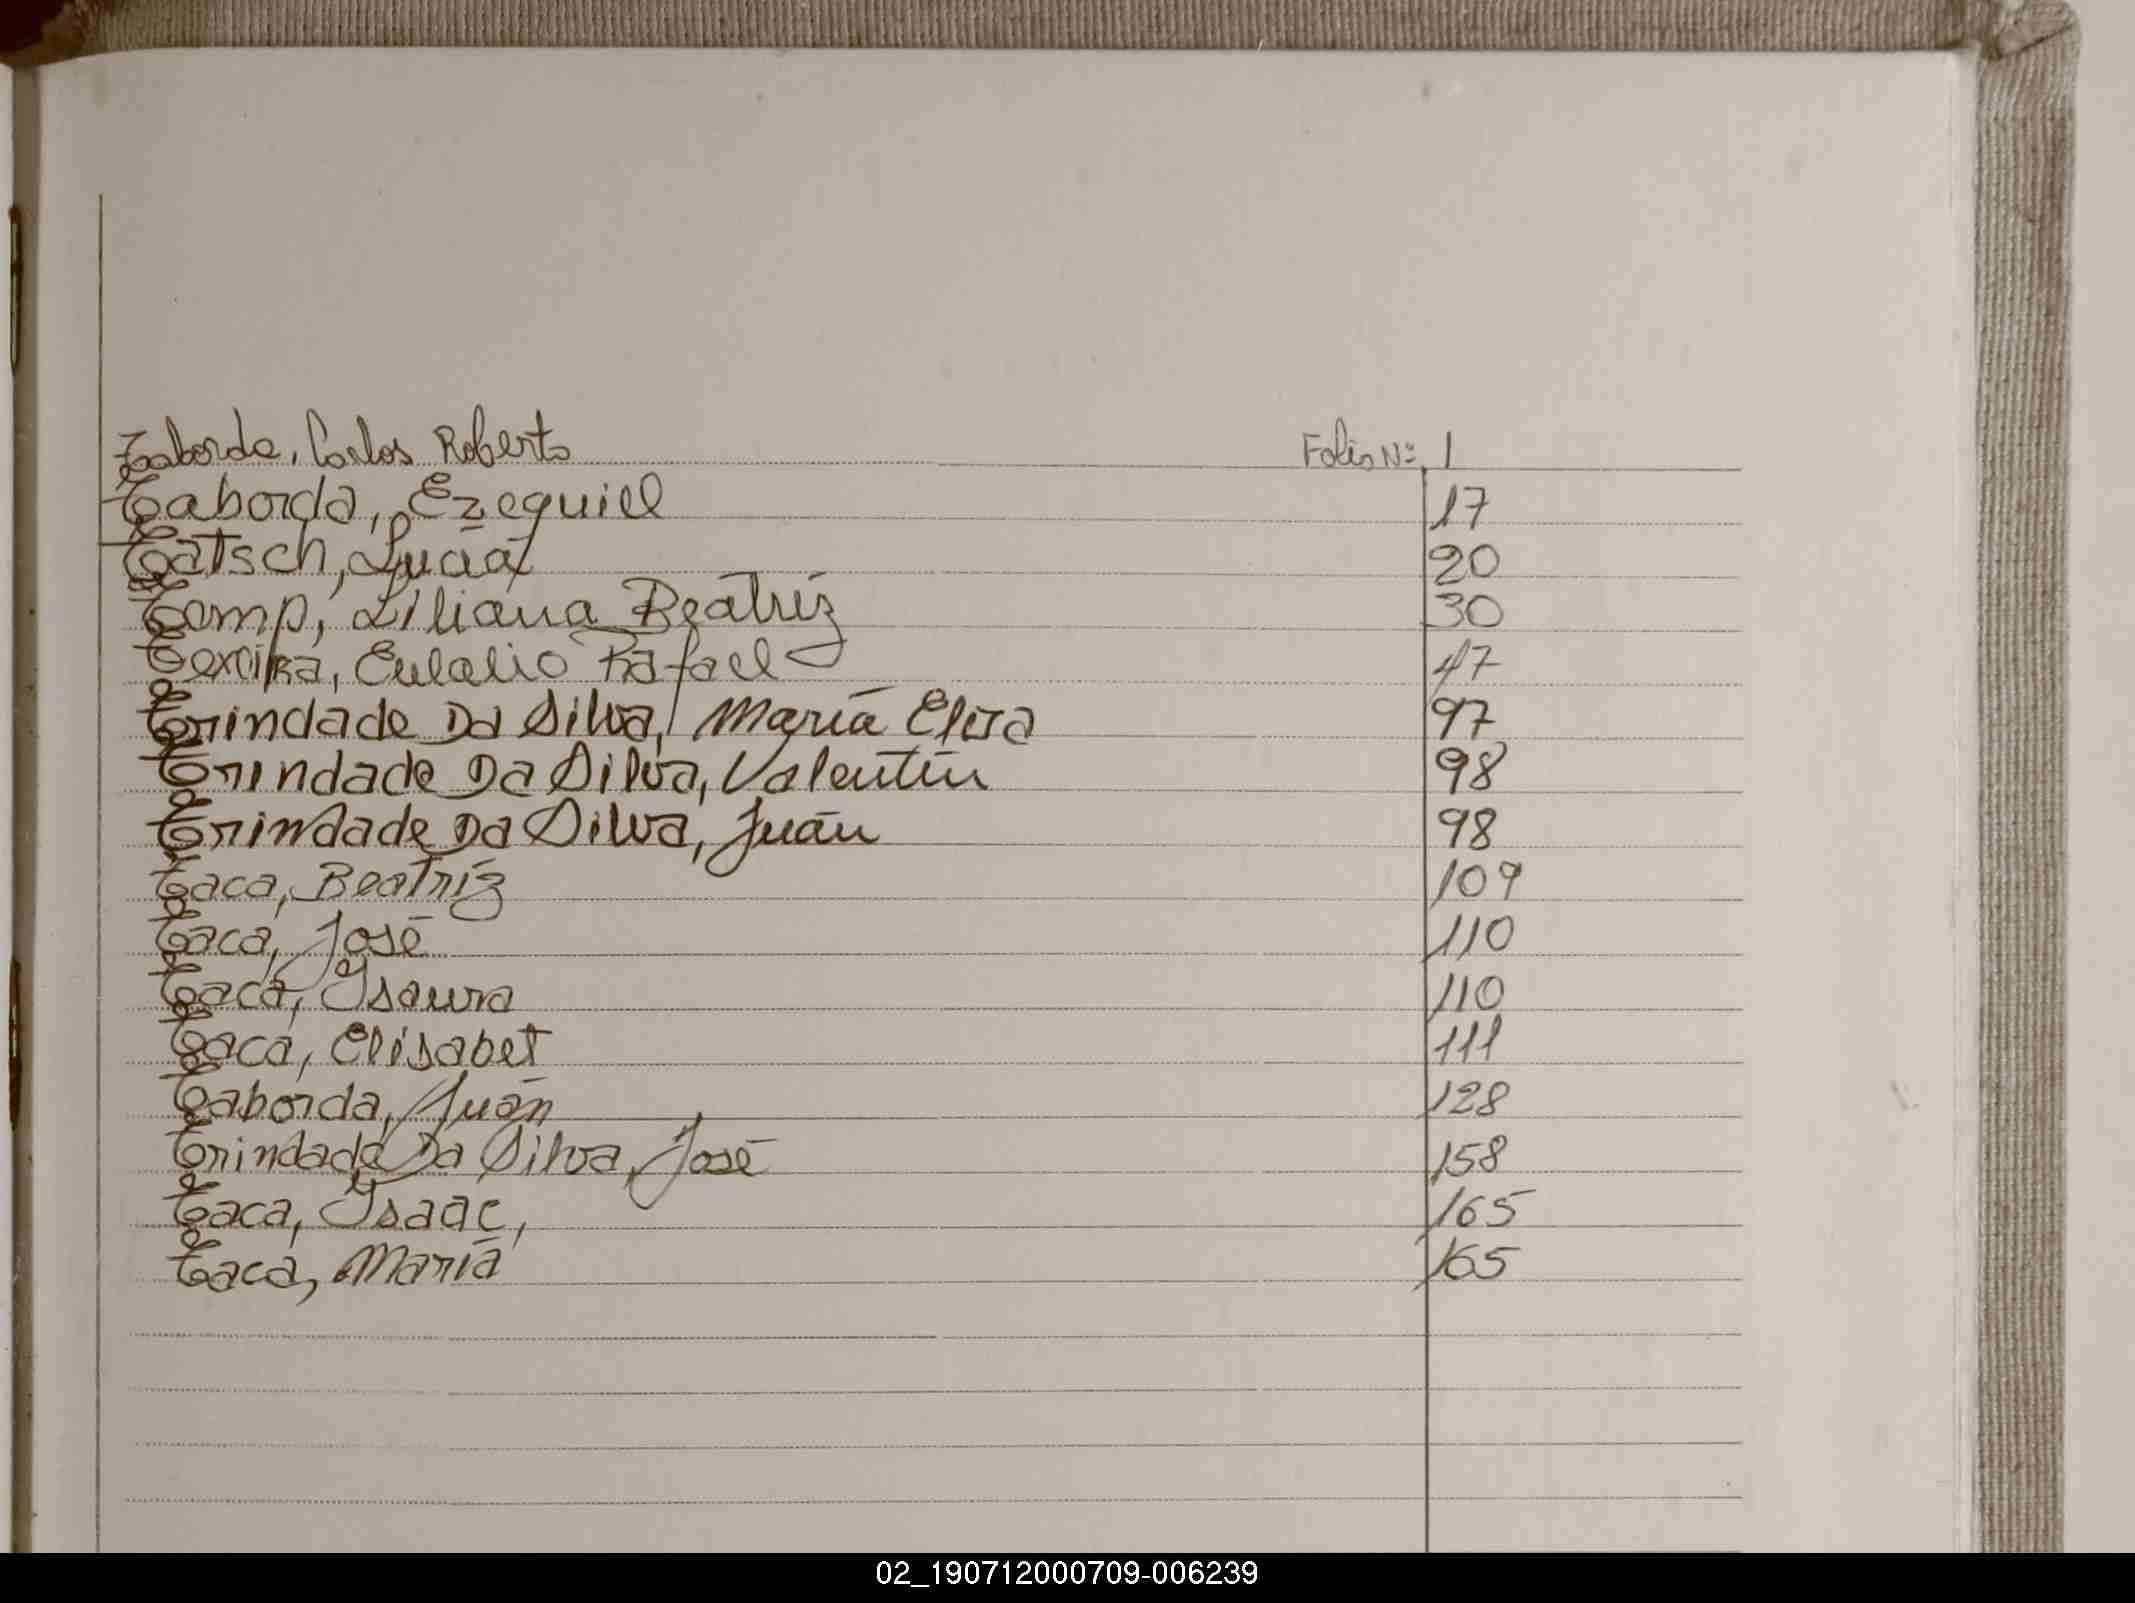 Taborda, Carlos Roberto Folio Nº 1
Taborda, Ezequiel 17
Tatsch, Lucía 20
Temp, Liliana Beatriz 30
Texeira, Eulalio Rafael 47
Trindade Da Silva, María Elisa 97
Trindade Da Silva, Valentín 98
Trindade Da Silva, Juán 98
Taca, Beatríz 109
Taca, José 110
Taca, Ysaura 110
Taca, Elisabet 111
Taborda, Juán 128
Trindade Da Silva, José 158
Taca, Ysaac, 165
Taca, María 165
02_190712000709-006239